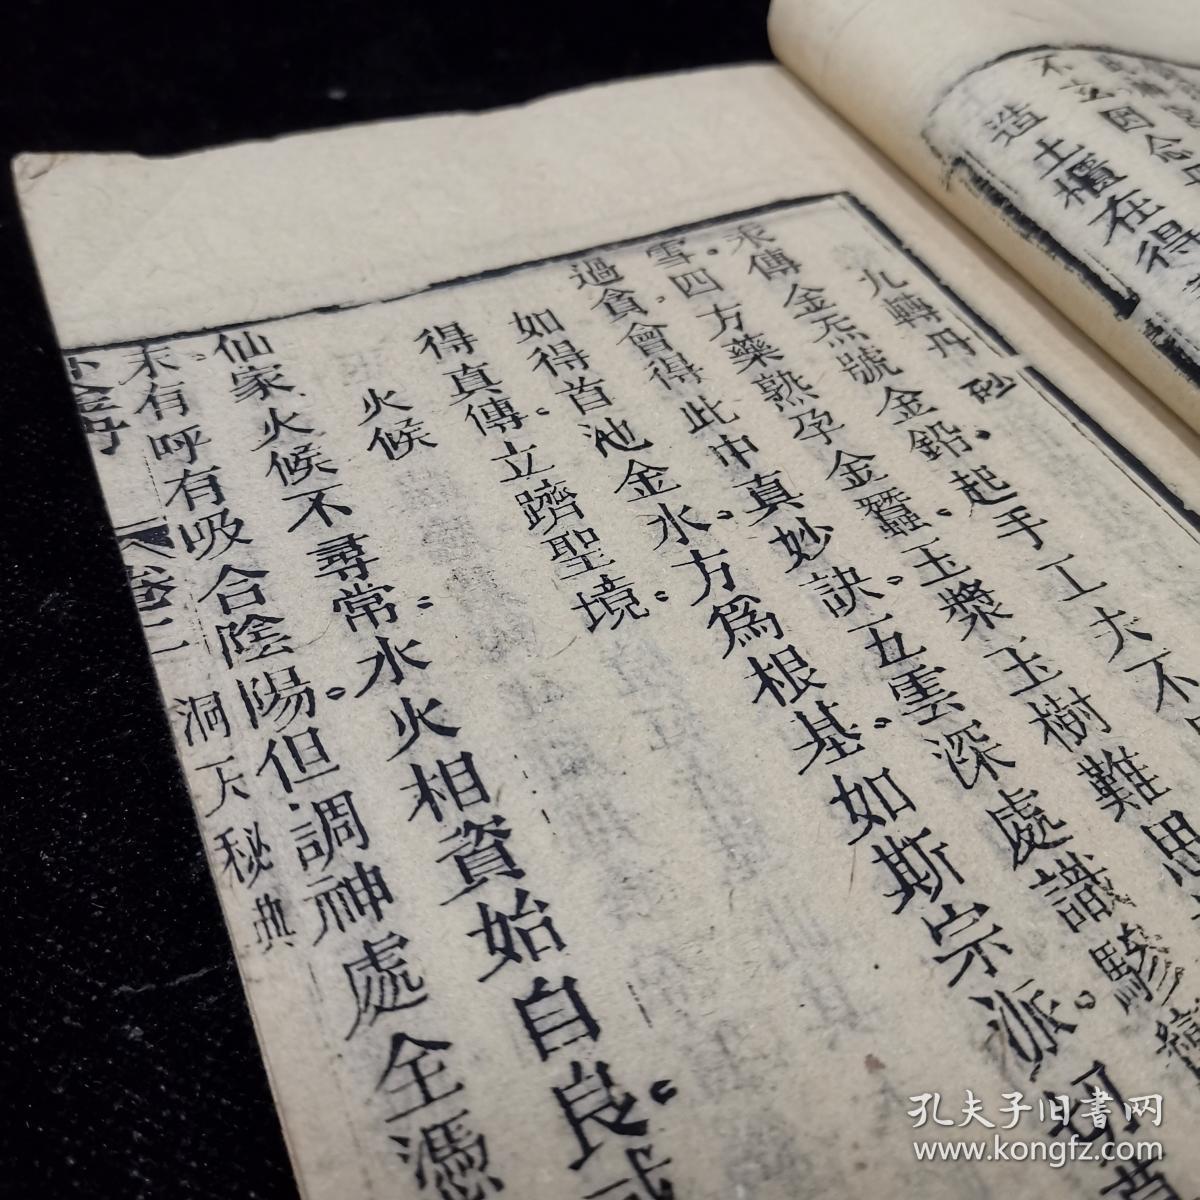 不亥因念
造土櫃在得
九轉丹砂
汞傳金炁號金鉛。起手工夫不
雪。四方藥熟孕金蠶。玉漿玉樹難思
過貪。會得此中真妙訣。五雲深處識驂鸞
如得首池金水。方為根基。如斯宗派。切
得真傳。立躋聖境。
火候
仙家火候不尋常。水火相資始自良。或
有呼有吸合陰陽。但調神處全憑
外金丹 卷二 洞天秘典
孔夫子旧书网
www.kongfz.com